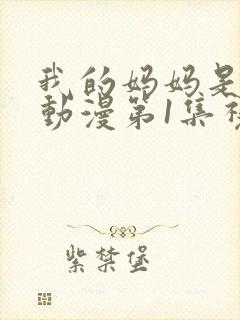 我的妈妈是
動漫第1集
紫禁堡